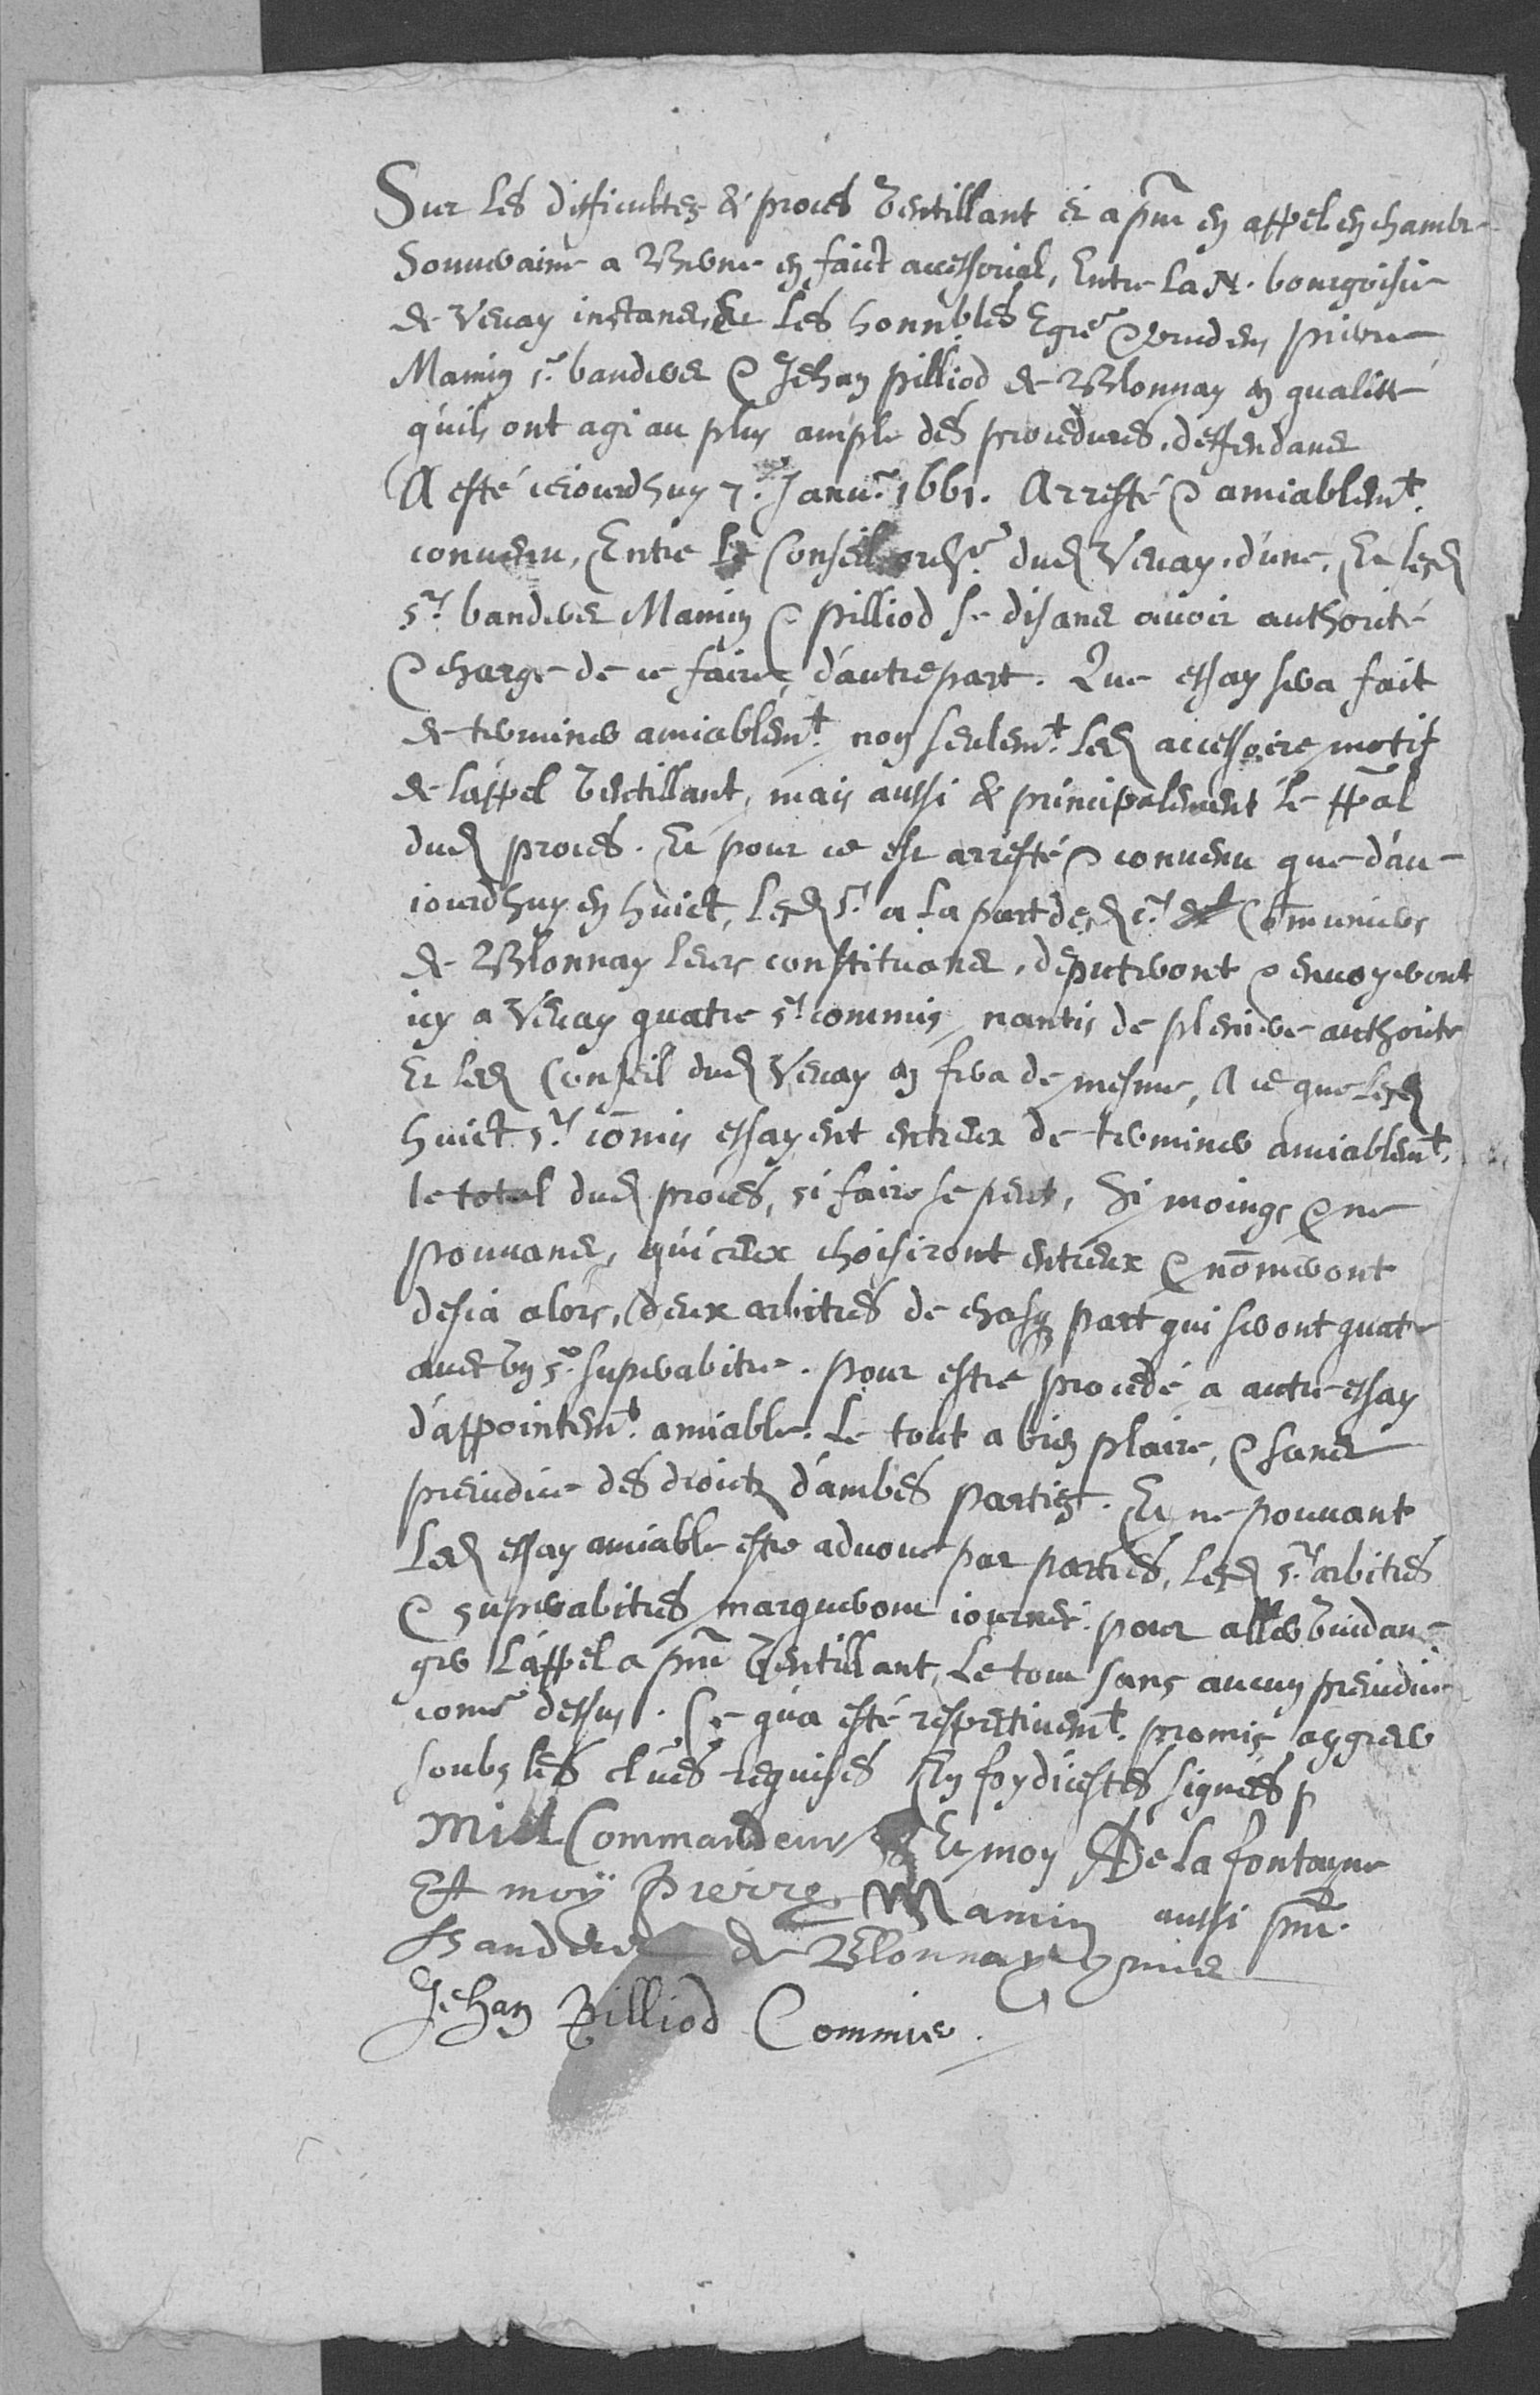 Sur les difficultez & proces ventillant et a pnt en appel en chambre
Souveraine a Berne en faict accessorial, Entre la N. bourgoisie
de Vevay instans, & les honnbles Egre & prudens pierre
Mamin sr banderet & Jehan pilliod de Blonnay en qualité
quils ont agi au plus ample des procedures, deffendans
A esté cejourdhuy 7.e Janur 1661. Arresté & amiablemt.
convenu, Entre le Conseil ordre dud Vevay, d'une, Et lesd
srs banderet Mamin & pilliod se disans avoir authorité
& charge de ce faire, d'autre part. Que essay sera fait
de terminer amiablemt. non seulemt. led accessoire motif
de l'appel ventillant, mais aussi & principalement le ppal
dud proces. Et pour ce est arresté & convenu que d'au-
jourdhuy en huict, lesd srs a la part desd srs Communiers
de Blonnay leurs constituans, deputeront & envoyeront
icy a Vevay quatre srs commis nantis de pleniere authorite
Et led Conseil dud Vevay en fera de mesme, A ce que lesd
huict srs comis essayent entreux de terminer amiablemt.
le total dud proces, si faire se peut, Si moings & ne
pouvans, qu'iceux choisiront entreux & nomeront
desia alors, deux arbitres de chasq part qui seront quatre
avec un sr superabitre. pour estre procedé a autre essay
d'appointemt. amiable. Le tout a bien plaire, & sans
prejudice des droictz d'ambes parties. Et ne pouvant
led essay amiable estre advoué par parties, lesd srs arbitres
& superabitres marqueront journée pour aller vuidan-
ger l'appel a pnt ventillant, Le tout sans aucun prejudice
come dessus. Ce qu'a esté respectivemt. promis aggreer
soubs les clües requises En foy d'icestes signées p
Mill Commandeur Et moy De la fontayne
Et moy Pierre Mamin aussi pnt.
Banderet de Blonnay Comis
Jehan Pilliod Commis.